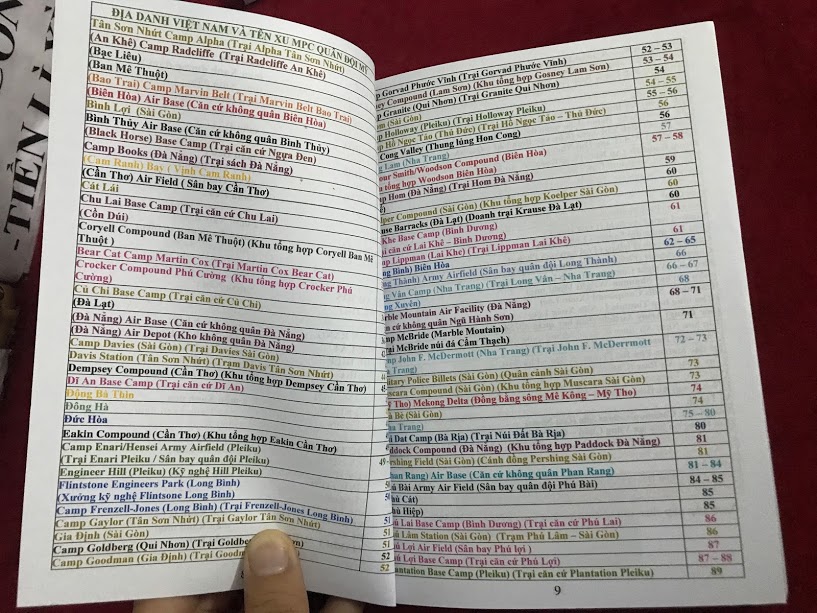 - TIỀN
ĐỊA DANH VIỆT NAM VÀ TÊN XU MPC QUÂN ĐỘI MỸ
Tân Sơn Nhứt Camp Alpha (Trại Alpha Tân Sơn Nhứt)
(An Khê) Camp Radcliffe (Trại Radcliffe An Khê)
(Bạc Liêu)
(Ban Mê Thuột)
(Bao Trai) Camp Marvin Belt (Trại Martin Belt Bao Trai)
(Biên Hòa) Air Base (Căn cứ không quân Biên Hòa)
Bình Lợi (Sài Gòn)
Bình Thủy Air Base (Căn cứ không quân Bình Thủy)
(Black Horse) Base Camp (Trại căn cứ Ngựa Đen)
Camp Books (Đà Nẵng) (Trại sách Đà Nẵng)
(Cam Ranh) Bay ( Vịnh Cam Ranh)
(Cần Thơ) Air Field ( Sân bay Cần Thơ)
Cát Lái
Chu Lai Base Camp (Trại căn cứ Chu Lai)
(Cồn Dúi)
Coryell Compound (Ban Mê Thuột) (Khu tổng hợp Coryell Ban Mê
Thuột )
Bear Cat Camp Martin Cox (Trại Martin Cox Bear Cat)
Crocker Compound Phú Cường (Khu tổng hợp Crocker Phú
Cường)
Củ Chi Base Camp (Trại căn cứ Củ Chi)
(Đà Lạt)
(Đà Nẵng) Air Base (Căn cứ không quân Đà Nẵng)
(Đà Nẵng) Air Depot (Kho không quân Đà Nẵng)
Camp Davies (Sài Gòn) (Trại Davies Sài Gòn)
Davis Station (Tân Sơn Nhứt) (Trạm Davis Tân Sơn Nhứt)
Dempsey Compound (Cần Thơ) (Khu tổng hợp Dempsey Cần Thơ)
Dĩ An Base Camp (Trại căn cứ Dĩ An)
Động Bà Thìn
Đông Hà
Đức Hòa
Eakin Compound (Cần Thơ) (Khu tổng hợp Eakin Cần Thơ)
Camp Enari/Hensei Army Airfield (Pleiku)
(Trại Enari Pleiku / Sân bay quân đội Pleiku) 49
Engineer Hill (Pleiku) (Kỹ nghệ Hill Pleiku)
Flintstone Engineers Park (Long Bình) 50
(Xưởng kỹ nghệ Flintsone Long Bình) 50
Camp Frenzell-Jones (Long Bình) (Trại Frenzell-Jones Long Bình)
Camp Gaylor (Tân Sơn Nhứt) (Trại Gaylor Tân Sơn Nhứt) 51
Gia Định (Sài Gòn) 51
Camp Goldberg (Qui Nhơn) (Trại Goldberg 52
Camp Goodman (Gia Định) (Trại Goodman 52
Gorvad Phước Vĩnh (Trại Gorvad Phước Vĩnh) 52 – 53
Compound (Lam Sơn) (Khu tổng hợp Gosney Lam Sơn) 53 – 54
Granite (Qui Nhơn) (Trại Granite Qui Nhơn) 54
(Sài Gòn) 54 – 55
Holloway (Pleiku) (Trại Holloway Pleiku) 55 – 56
Hồ Ngọc Tảo (Thủ Đức) (Trại Hồ Ngọc Tảo – Thủ Đức) 56
Cong Valley (Thung lũng Hon Cong) 56
Lam (Nha Trang) 57
Smith/Woodson Compound (Biên Hòa) 57 – 58
tổng hợp Woodson Biên Hòa)
Hom (Đà Nẵng) (Trại Hom Đà Nẵng) 59
60
Compound (Sài Gòn) (Khu tổng hợp Koelper Sài Gòn) 60
Barracks (Đà Lạt) (Doanh trại Krause Đà Lạt) 60
Khe Base Camp (Bình Dương) 61
căn cứ Lai Khê – Bình Dương)
Lippman (Lai Khe) (Trại Lippman Lai Khê) 61
Bình) Biên Hòa 62 – 65
Thành) Army Airfield (Sân bay quân đội Long Thành) 66
Vân Camp (Nha Trang) (Trại Long Vân – Nha Trang) 66 – 67
Xuyên) 68
Mountain Air Facility (Đà Nẵng) 68 – 71
cứ không quân Ngũ Hành Sơn)
McBride (Marble Moutain) 71
McBride núi đá Cẩm Thạch)
John F. McDermott (Nha Trang) (Trại John F. McDerrmott 72 – 73
Trang)
Police Billets (Sài Gòn) (Quân cảnh Sài Gòn) 73
Compound (Sài Gòn) (Khu tổng hợp Muscara Sài Gòn) 73
Tho) Mekong Delta (Đồng bằng sông Mê Kông – Mỹ Tho) 74
Bè (Sài Gòn) 74
Trang) 75 – 80
Dat Camp (Bà Rịa) (Trại Núi Đất Bà Rịa) 80
Compound (Đà Nẵng) (Khu tổng hợp Paddock Đà Nẵng) 81
Field (Sài Gòn) (Cánh đồng Pershing Sài Gòn) 81
Rang) Air Base (Căn cứ không quân Phan Rang) 81 – 84
Bài Army Air Field (Sân bay quân đội Phú Bài) 84 – 85
Cát) 85
Hiệp) 85
Lai Base Camp (Bình Dương) (Trại căn cứ Phú Lai) 86
Lâm Station (Sài Gòn) (Trạm Phú Lâm – Sài Gòn) 86
Lợi Air Field (Sân bay Phú lợi ) 87
Lợi Base Camp (Trại căn cứ Phú Lợi) 87 – 88
Base Camp (Pleiku) (Trại căn cứ Plantation Pleiku) 89
9